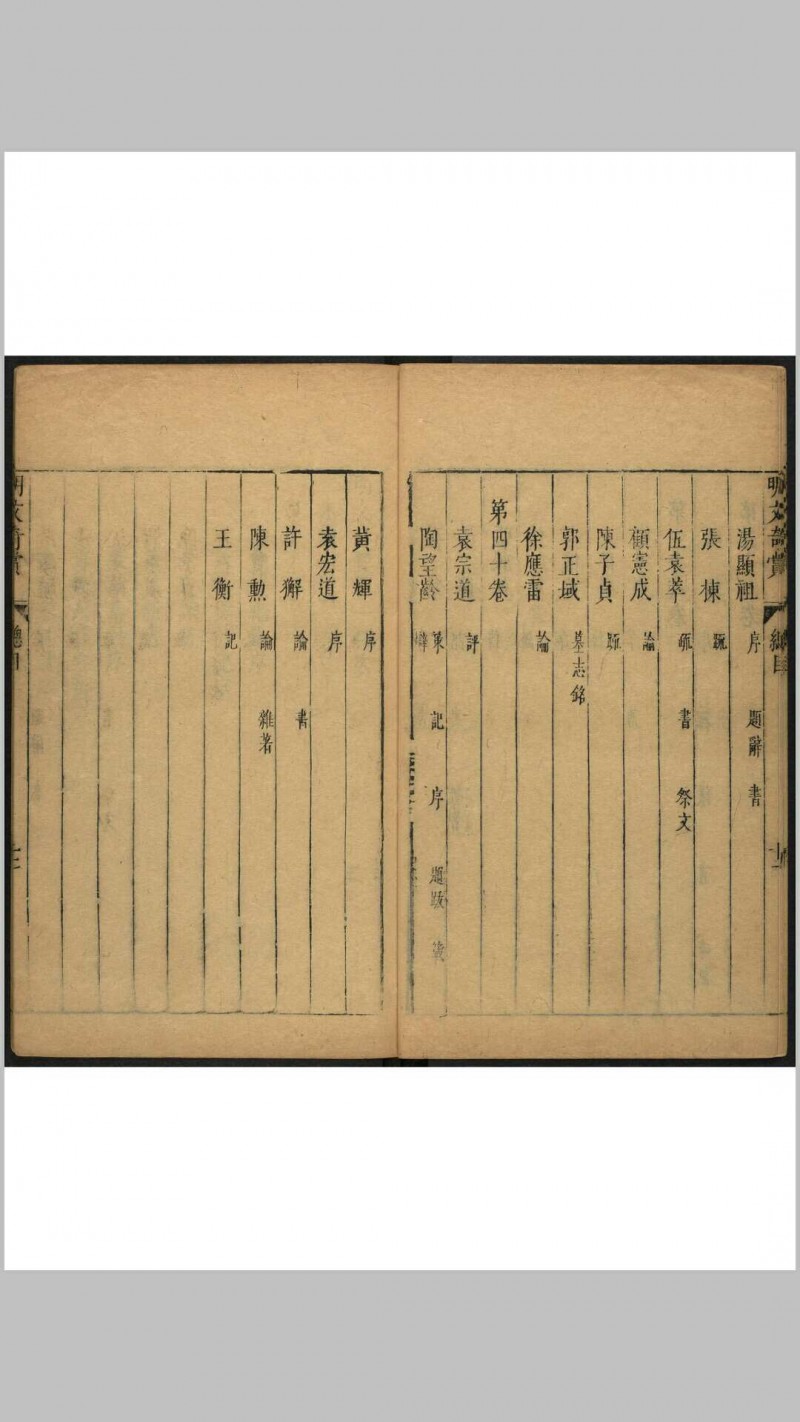 明文奇賞
總目
十二
湯顯祖 序 題辭 書
張棟 疏
伍袁萃 疏 書 祭文
顧憲成 論
陳子貞 疏
郭正域 墓志銘
徐應雷 論
第四十卷
袁宗道 評
陶望齡 策 記 序 題跋
黃輝 序
袁宏道 序
許獬 論 書
陳勲 論 雜著
王衡 記
明文奇賞
總目